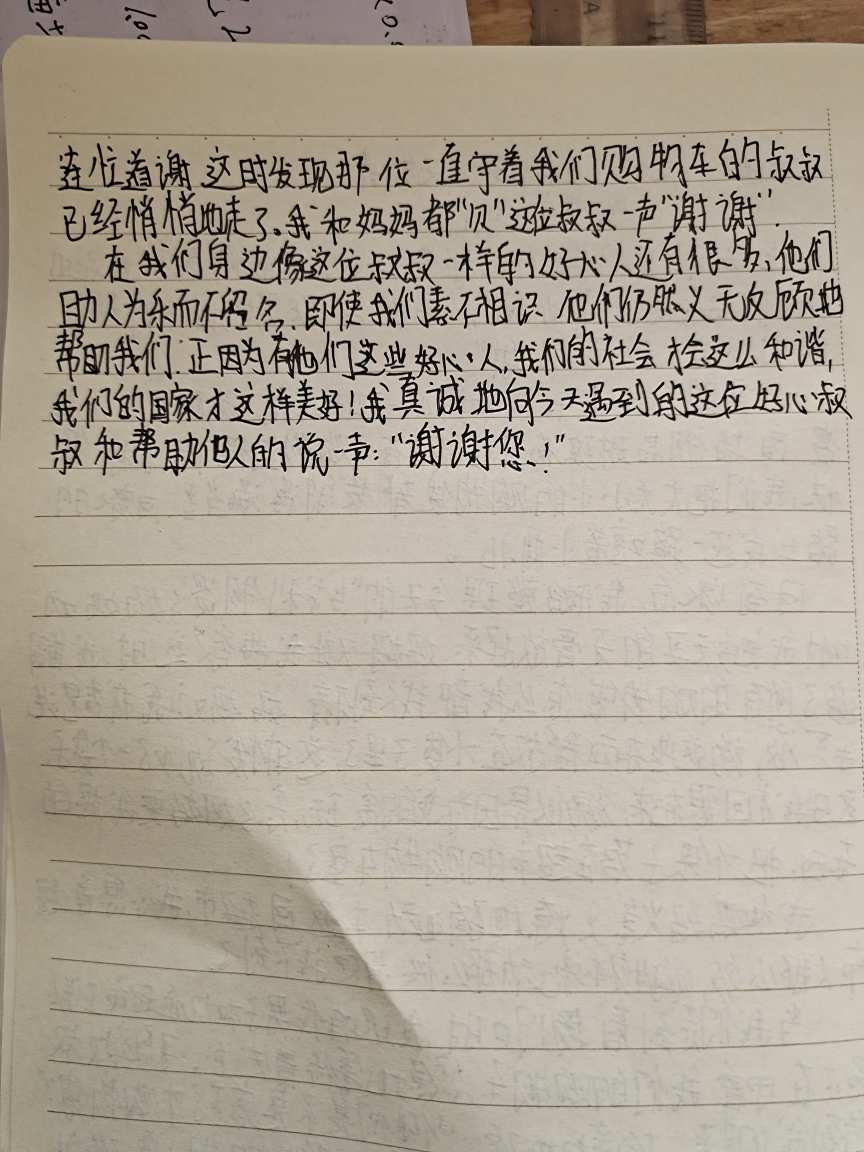 连忙道谢 这时发现那位一直守着我们购物车的叔叔
已经悄悄地走了。我和妈妈都"贝"这位叔叔一声"谢谢".
在我们身边像这位叔叔一样的好心人还有很多,他们
助人为乐而不留名.即使我们素不相识 他们仍然义无反顾地
帮助我们.正因为有他们这些好心人,我们的社会才会这么和谐,
我们的国家才这样美好!我真诚地向今天遇到的这位好心叔
叔和帮助他人的说一声:"谢谢您!"